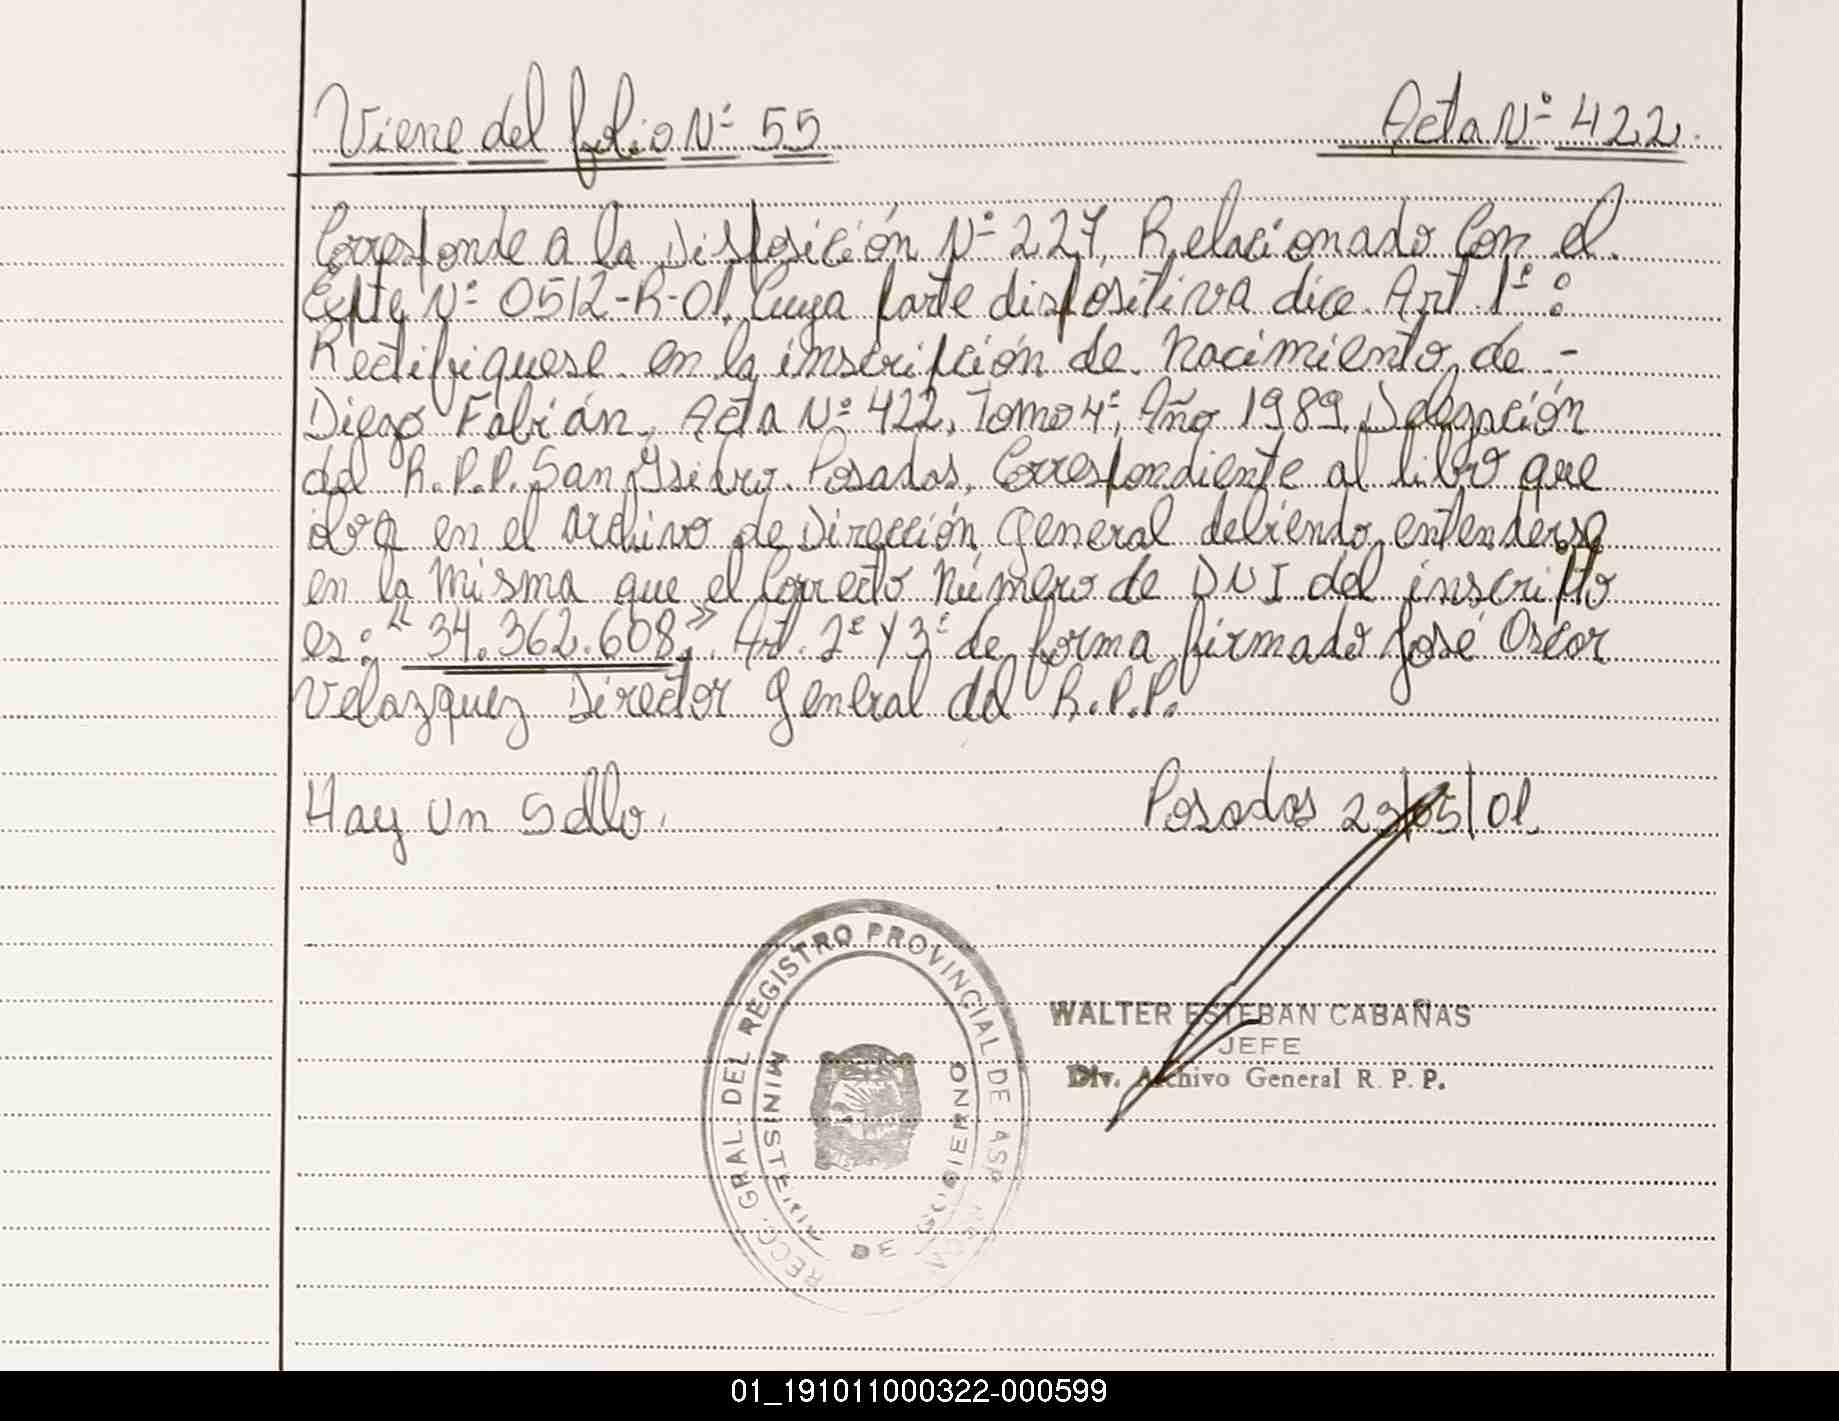 Viene del folio Nº 55
Acta Nº 422.
Corresponde a la Disposición Nº 227, Relacionado Con el
Expte Nº 0512-R-01, Cuya parte dispositiva dice Art 1º:
Rectifiquese en la inscripción de Nacimiento de -
Diego Fabián, Acta Nº 422, Tomo 4º, Año 1989, Delegación
del R.P.P. San Ysidro. Posadas, Correspondiente al libro que
obra en el archivo de Dirección General debiendo entenderse
en la Misma que el Correcto Número de DNI del inscripto
es: "34.362.608". Art. 2º y 3º de forma firmado José Oscar
Velazquez Director General del R.P.P.
Hay Un Sello.
Posadas 29/05/01.
RECC. GRAL. DEL REGISTRO PROVINCIAL DE
MINISTERIO DE GOBIERNO
WALTER ESTEBAN CABAÑAS
JEFE
Div. Archivo General R. P. P.
01_191011000322-000599